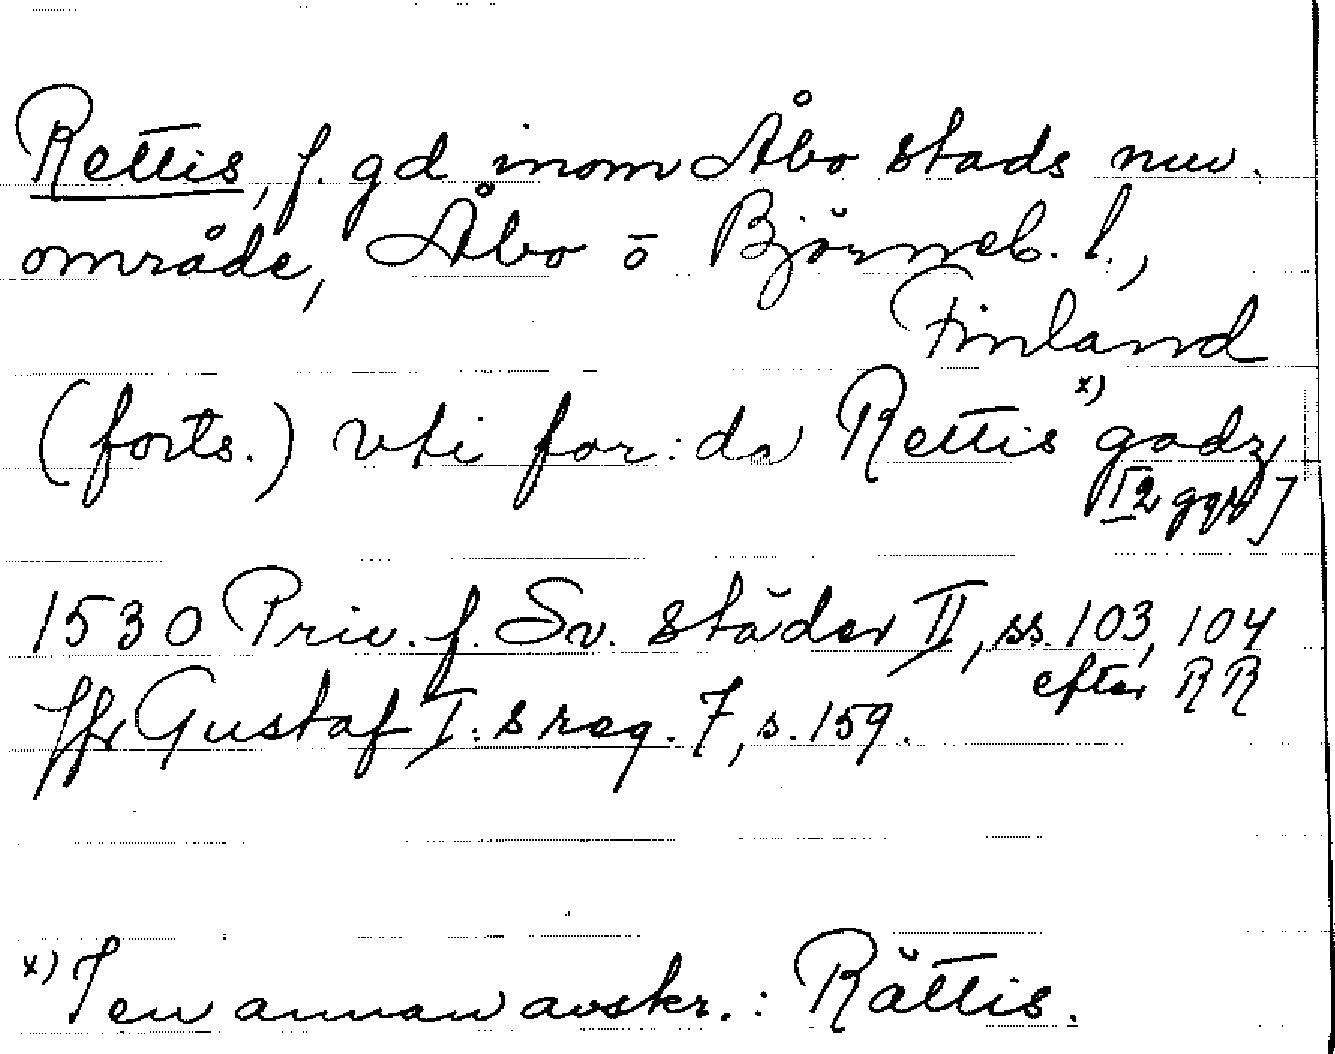 Rettis, f. gd inom Åbo stads nuv.
område, Åbo o Björneb. l.,
Finland
(forts.) vti for:da Rettis x) godz
[2 ggr]
1530 Priv. f. Sv. städer II, ss. 103, 104
efter RR
Jfr Gustaf I:s reg. 7, s. 159.
x) I en annan avskr.: Rättis.